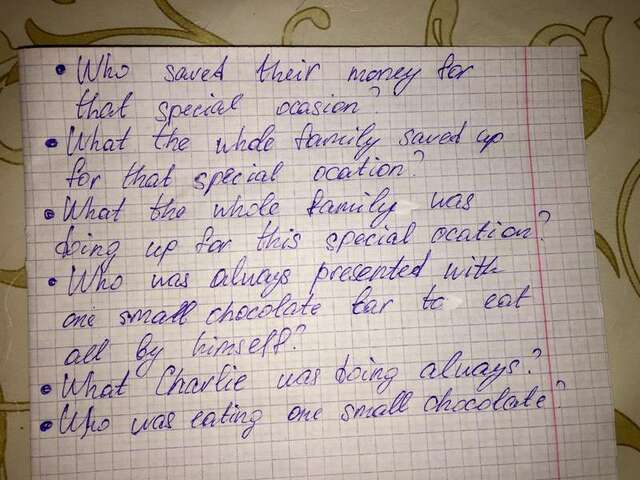 • Who saved their money for
that special ocasion?
• What the whole family saved up
for that special ocation?
• What the whole family was
doing up for this special ocation?
• Who was always presented with
one small chocolate bar to eat
all by himself?
• What Charlie was doing always?
• Who was eating one small chocolate?